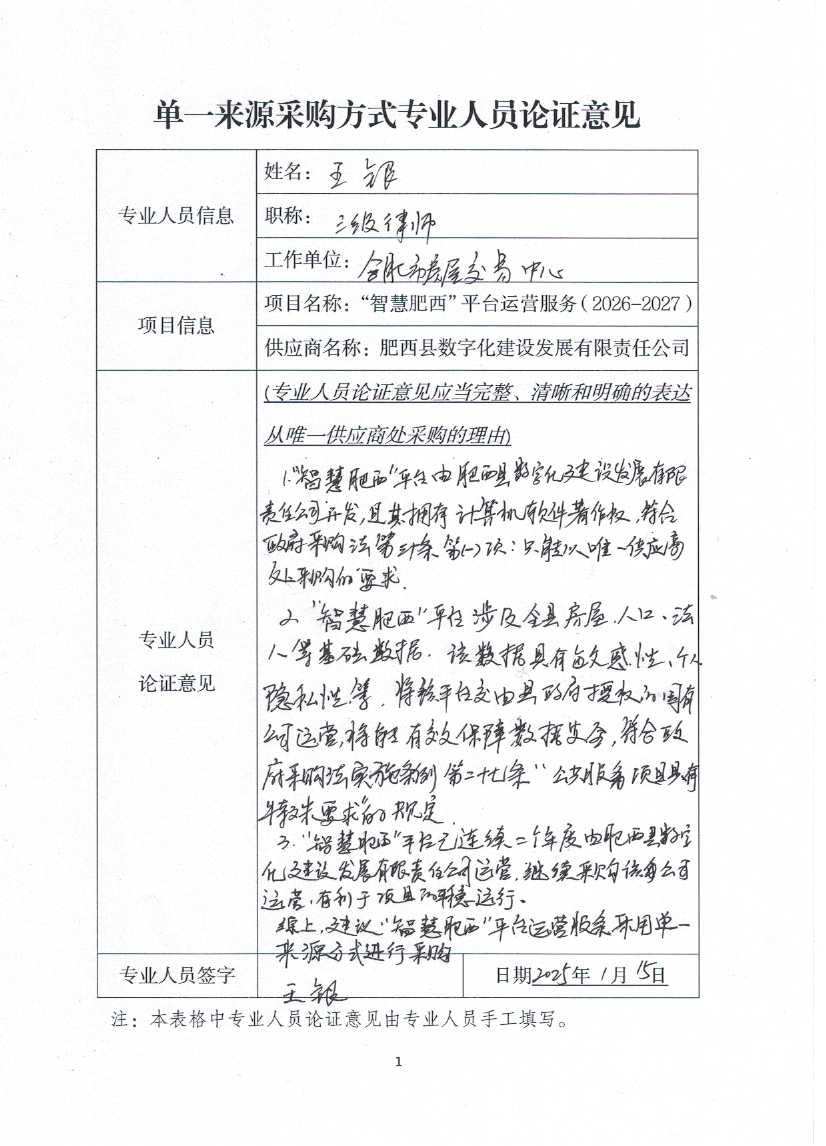 单一来源采购方式专业人员论证意见
专业人员信息
姓名：王银
职称：三级律师
工作单位：合肥市房屋交易中心
项目信息
项目名称：“智慧肥西”平台运营服务（2026-2027）
供应商名称：肥西县数字化建设发展有限责任公司
专业人员
论证意见
(专业人员论证意见应当完整、清晰和明确的表达
从唯一供应商处采购的理由)
1.“智慧肥西”平台由肥西县数字化建设发展有限
责任公司开发，且其拥有计算机软件著作权，符合
政府采购法第三十一条第(一)项：只能从唯一供应商
处采购的要求.
2.“智慧肥西”平台涉及全县房屋、人口、法
人等基础数据.该数据具有敏感性、个人
隐私性等，将该平台交由县政府授权的国有
公司运营，将能有效保障数据安全，符合政
府采购法实施条例第二十七条“公共服务项目具有
特殊要求”的规定.
3.“智慧肥西”平台已连续二个年度由肥西县数字
化建设发展有限责任公司运营，继续采购该公司
运营，有利于项目的平稳运行。
综上，建议“智慧肥西”平台运营服务采用单一
来源方式进行采购
专业人员签字
王银
日期2025年1月15日
注：本表格中专业人员论证意见由专业人员手工填写。
1